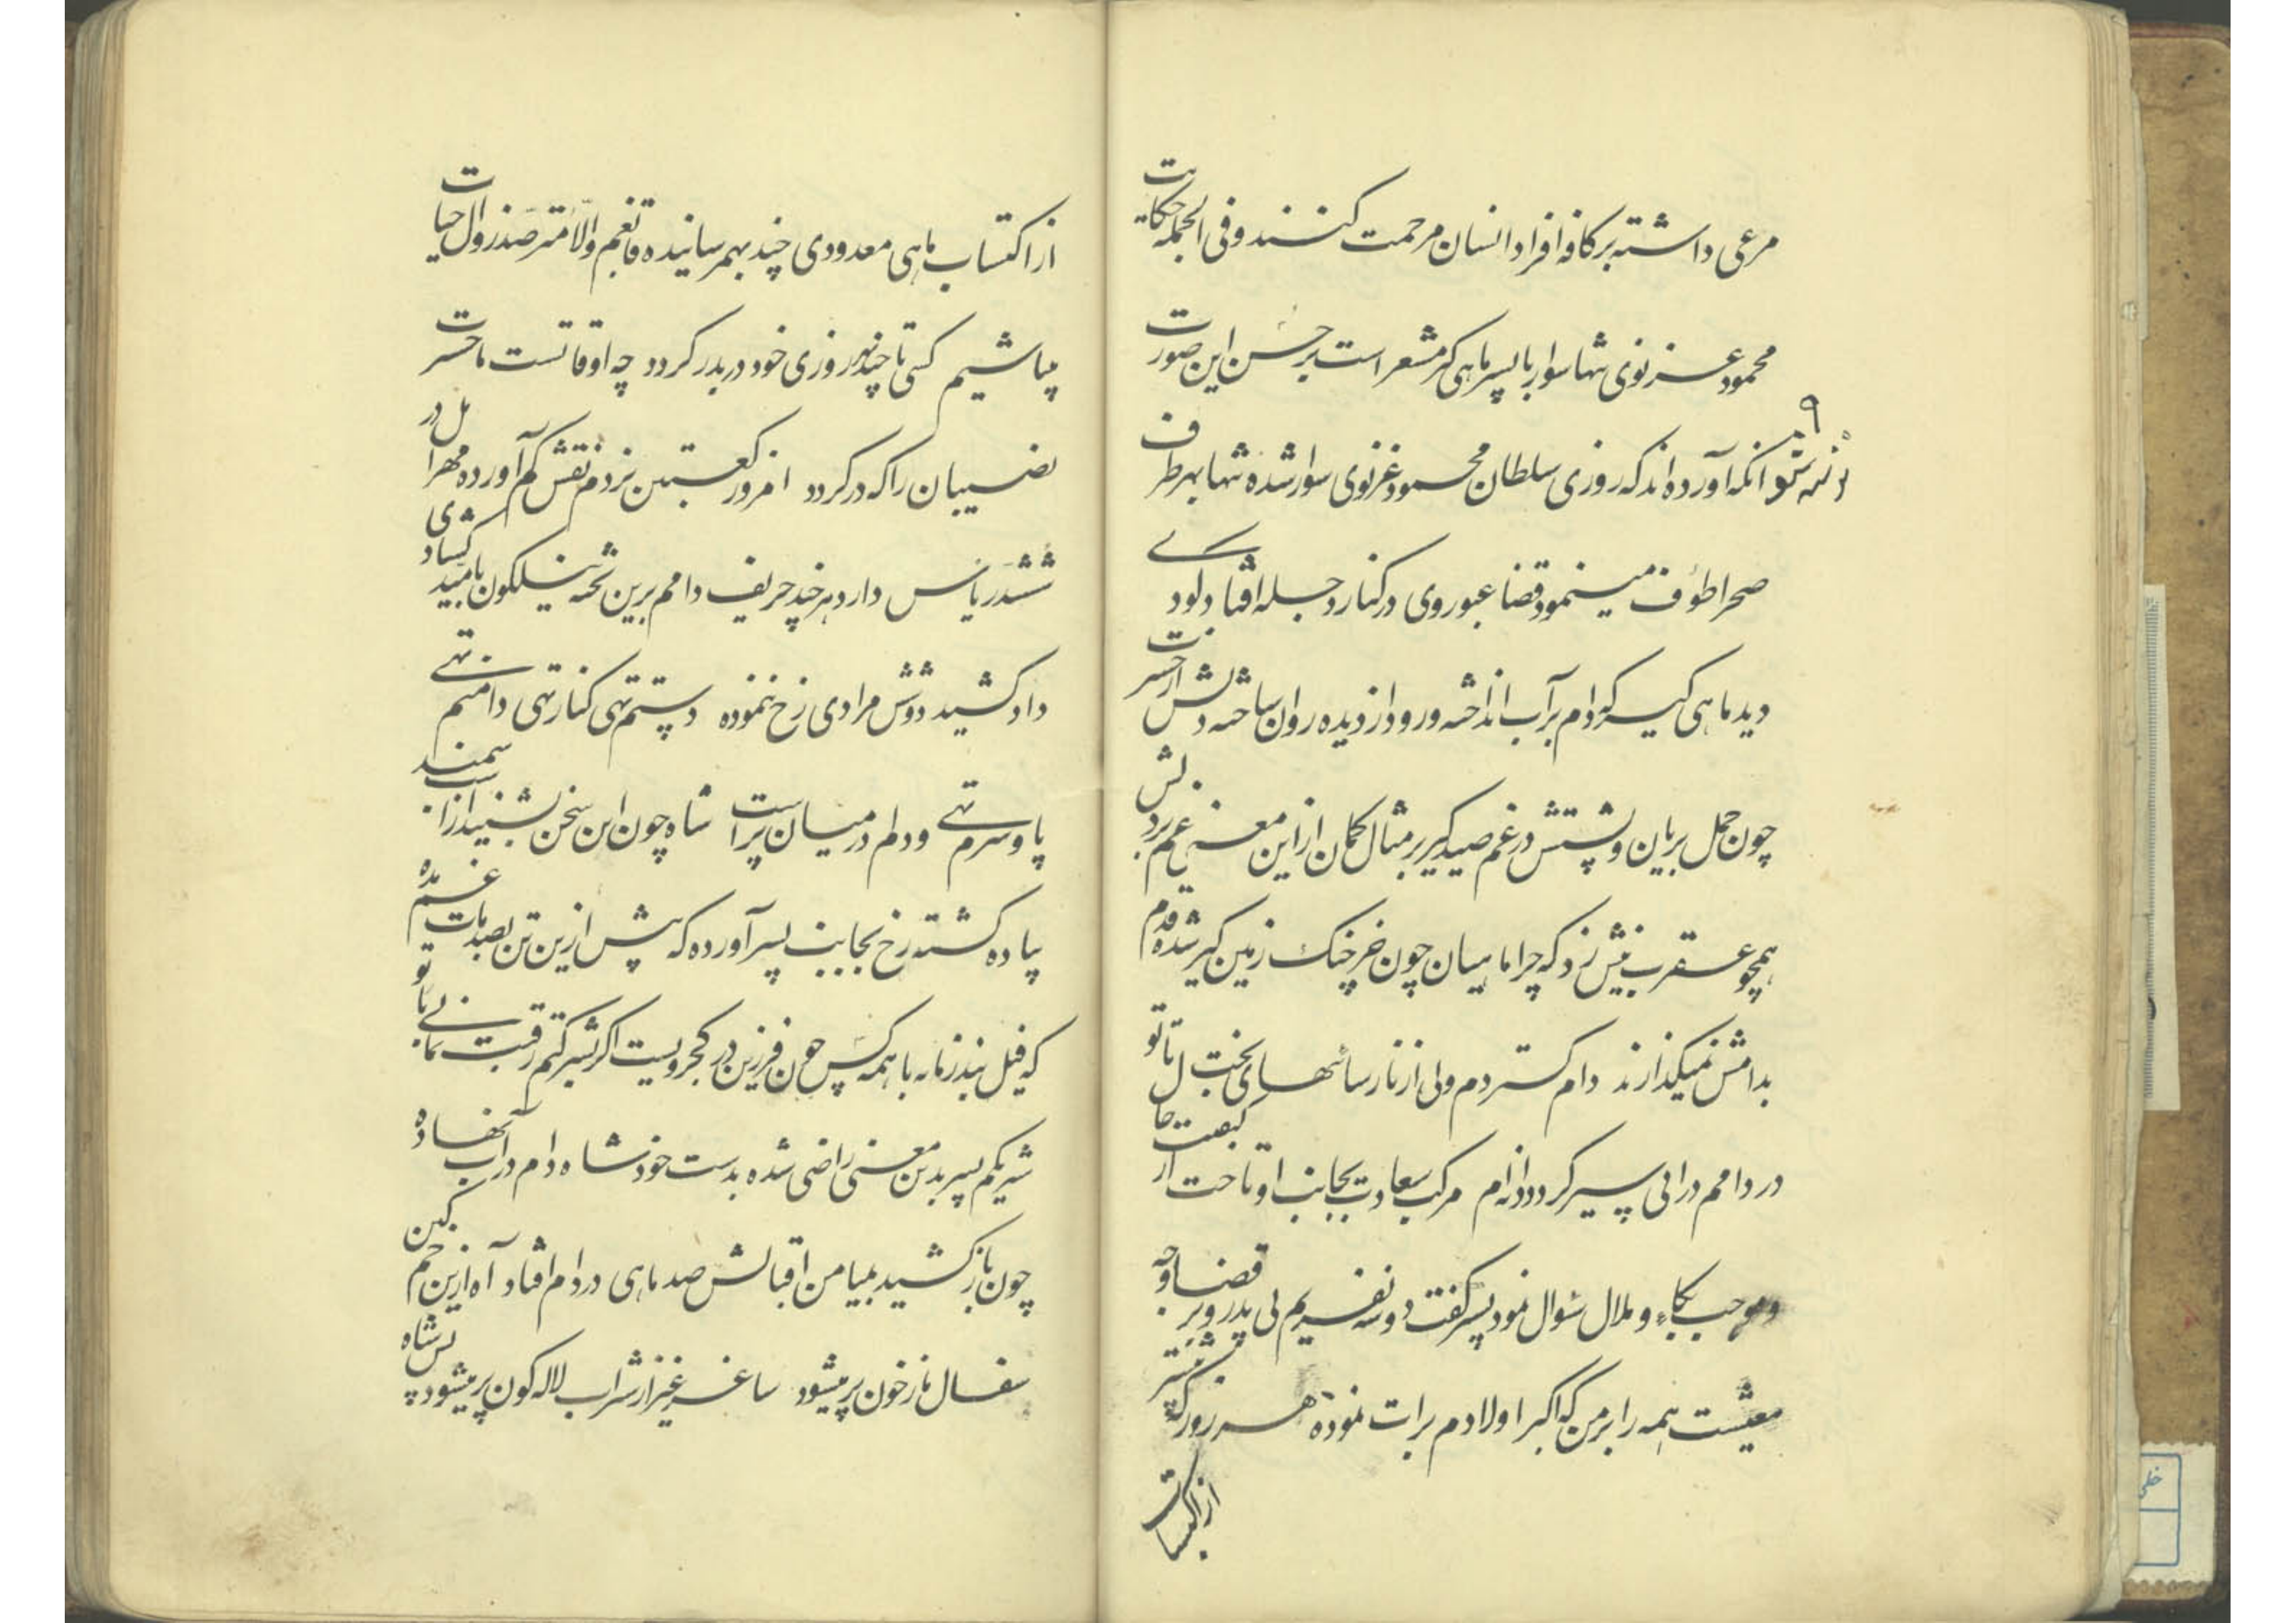 مرعی داشته بر کافه افراد انسان مرحمت کنند و فی الجمله حکایت
محمود غزنوی تنها سوار با پسر ماهی گیر مشعر است بر حسن این صورت
۹
آنکه آورده اند که روزی سلطان محمود غزنوی سوار شده تنها بهر طرف
صحرا طوف مینمود قضا عبور وی در کنار دجله افتاد کودکی
دید ماهی گیر که دام بر آب انداخته و رود از دیده روان ساخته دلش از حسرت
چون حمل بریان و پشتش در غم صید کیر بر مثال کمان از این معنی غم بر دلش
همچو عقرب نیش زد که چرا ماهیان چون خرچنک زمین کیر شده قدم
بدامش نمیکذارند دام کستردم ولی از نارسائیهای بخت ل تا تو
در دامم درائی پیر کردد دانه ام مرکب سعادت بجانب او تاخت از کیفیت حا
و موجب بکاء و ملال سئوال نمود پسر کفت دو سه نفریم بی پدر و بر قضا وجه
معیشت همه را بر من که اکبر اولادم برات نموده هر روز که بیشتر
از اکتساب
از اکتساب ماهی معدودی چند بهم رسانیده قانعم و الا مترصد زوال حیات
میباشیم کسی تا چند بهر روزی خود دربدر کردد چه اوقاتست ما حسرت
نصیبان را که در کردد امروز کعبتین نردم نقش کم آورده مهرا ل در
ششدر یاس دارد هر چند حریف دامم برین تخته نیلکون بامید کشادی
داد کشید دوشش مرادی رخ ننموده دستم تهی کنار تهی دامنم تهی
پا و سرم تهی و دلم در میان پر است شاه چون این سخن بشنید از اسب سمند
پیاده کشته رخ بجانب پسر آورده که پیش ازین تن بصدمات غم مده
که فیل بند زمانه با همه کس چون فرزین در کجرویست اکر شرکتم رقبت نمائی با تو
شریکم پسر بدین معنی راضی شده بدست خود شاه دام در آب نهاده
چون باز کشید بمیامن اقبالش صد ماهی در دام افتاد آه ازین خم کهن
سفال ما ز خون پر میشود ساغر غیر از شراب لاله کون پر میشود پس شاه